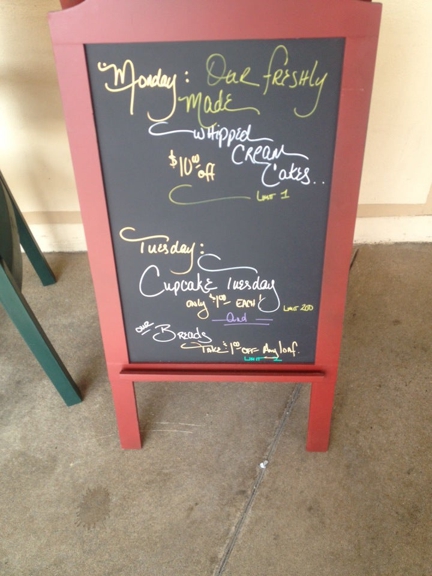 Monday: Our freshly
Made
Whipped
Cream
Cakes..
$10.00 off
Limit 1
Tuesday:
Cupcake Tuesday
only $1.00 each!
Limit 200
And
our Breads
Take $1.00 off Any loaf.
Limit